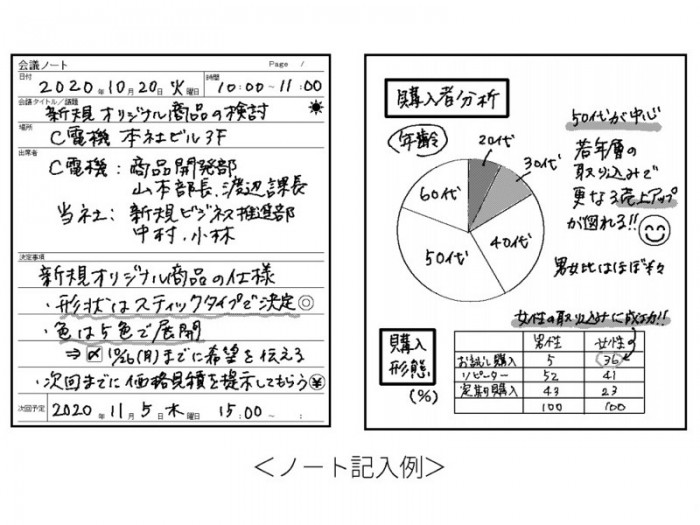 会議ノート Page /
日付 2020年10月20日火曜日 時間 10:00~11:00
会議タイトル/議題 新規オリジナル商品の検討
場所 C電機 本社ビル3F
出席者
C電機:商品開発部
山本部長、渡辺課長
当社:新規ビジネス推進部
中村、小林
決定事項
新規オリジナル商品の仕様
・形状はスティックタイプで決定◎
・色は5色で展開
⇒〆10/26(月)までに希望を伝える
・次回までに価格見積を提示してもらう¥
次回予定 2020年11月5日木曜日 15:00~ :
購入者分析
年齢
20代
30代
40代
50代
60代
50代が中心
若年層の
取り込みで
更なる売上アップ
が図れる!!
男女比はほぼ半々
女性の取り込みに成功!!
購入
形態
(%)
男性 女性
お試し購入 5 36
リピーター 52 41
定期購入 43 23
100 100
<ノート記入例>